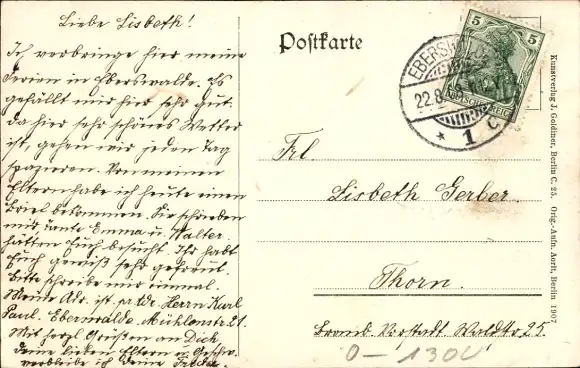 Liebe Lisbeth!
Ich verbringe hier meine
Ferien in Eberswalde. Es
gefällt mir hier sehr gut.
da hier sehr schönes Wetter
ist, gehen wir jeden Tag
spazieren. Von meinen
Eltern habe ich heute einen
Brief bekommen. Sie schreiben
mir, Tante Emma u. Walter
hätten Euch besucht. Ihr habt
Euch gewiß sehr gefreut.
Bitte schreibe mir einmal.
Meine Adr. ist Herrn Karl
Paul. Eberswalde. Mühlenstr. 21.
Mit herzl. Grüßen an Dich
deine lieben Eltern u. Geschw.
verbleibe ich Deine
Postkarte
5 5
EBERS
22.8.
* 1 c
Frl.
Lisbeth Gerber.
Thorn.
Bromb. Vorstadt Waldstr. 25.
0-1300
Kunstverlag J. Goldiner, Berlin C. 25. Orig.-Aufn. Aerit, Berlin 1907